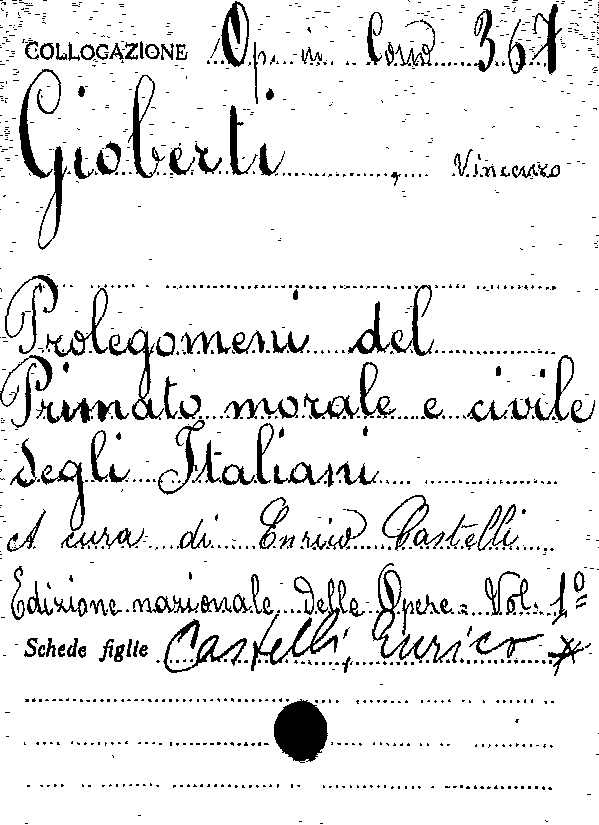 COLLOCAZIONE Op. in Corso 367
Gioberti, Vincenzo
Prolegomeni del
Primato morale e civile
degli Italiani
A cura di Enrico Castelli
Edizione nazionale delle Opere. Vol. 1º
Schede figlie Castelli, Enrico *